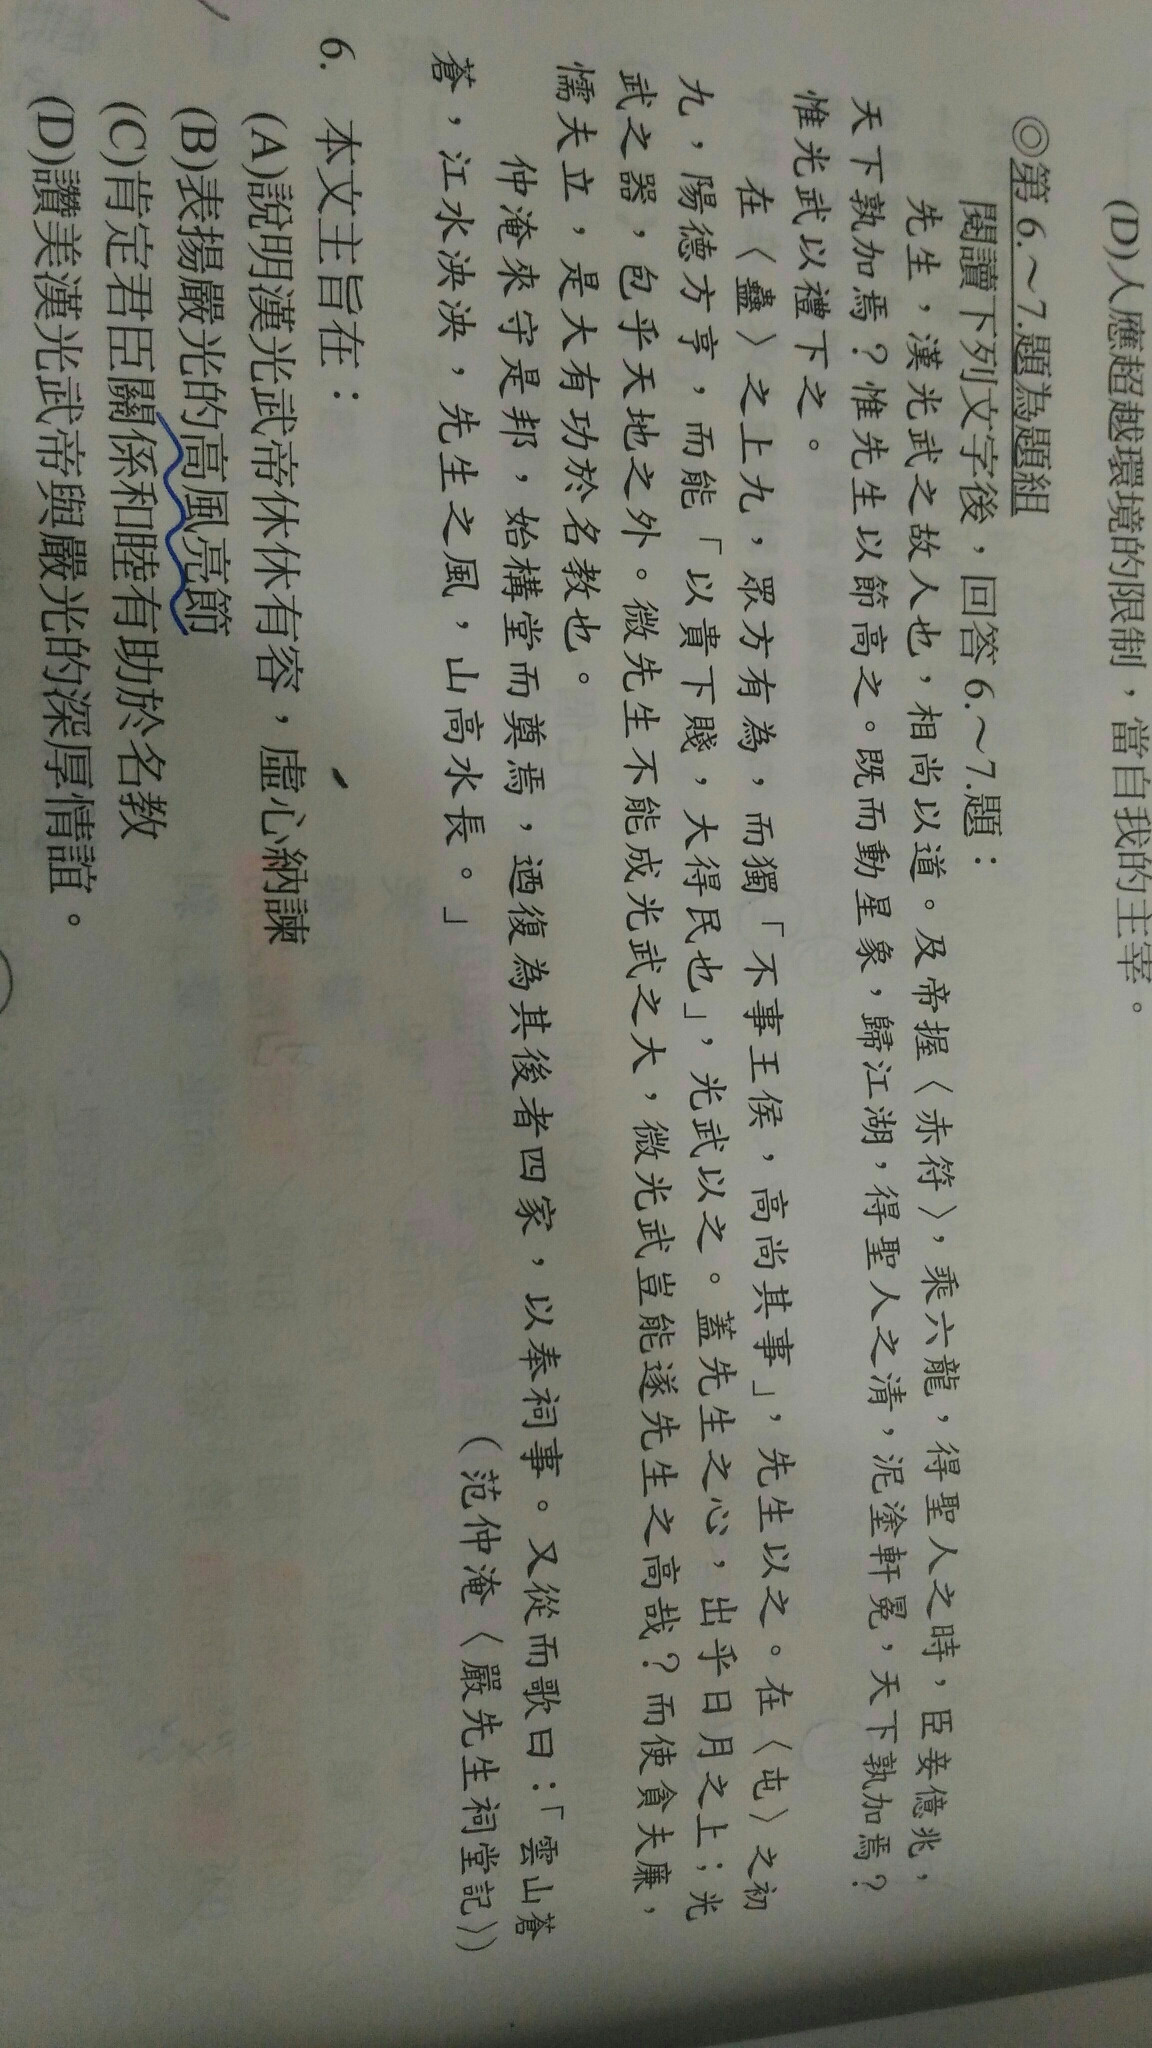 (D)人應超越環境的限制，當自我的主宰。
◎第 6.～7.題為題組
閱讀下列文字後，回答 6.～7.題：
先生，漢光武之故人也，相尚以道。及帝握〈赤符〉，乘六龍，得聖人之時，臣妾億兆，
天下孰加焉？惟先生以節高之。既而動星象，歸江湖，得聖人之清，泥塗軒冕，天下孰加焉？
惟光武以禮下之。
在〈蠱〉之上九，眾方有為，而獨「不事王侯，高尚其事」，先生以之。在〈屯〉之初
九，陽德方亨，而能「以貴下賤，大得民也」，光武以之。蓋先生之心，出乎日月之上；光
武之器，包乎天地之外。微先生不能成光武之大，微光武豈能遂先生之高哉？而使貪夫廉，
懦夫立，是大有功於名教也。
仲淹來守是邦，始構堂而奠焉，迺復為其後者四家，以奉祠事。又從而歌曰：「雲山蒼
蒼，江水泱泱，先生之風，山高水長。」（范仲淹〈嚴先生祠堂記〉）
6. 本文主旨在：
(A)說明漢光武帝休休有容，虛心納諫
(B)表揚嚴光的高風亮節
(C)肯定君臣關係和睦有助於名教
(D)讚美漢光武帝與嚴光的深厚情誼。